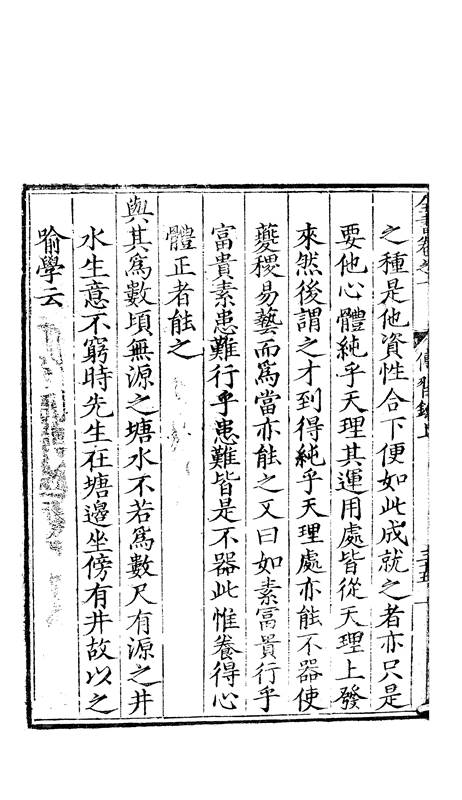 之種是他資性合下便如此成就之者亦只是
要他心體純乎天理其運用處皆從天理上發
來然後謂之才到得純乎天理處亦能不器使
夔稷易藝而爲當亦能之又曰如素富貴行乎
富貴素患難行乎患難皆是不器此惟養得心
體正者能之
與其爲數頃無源之塘水不若爲數尺有源之井
水生意不窮時先生在塘邊坐傍有井故以之
喻學云